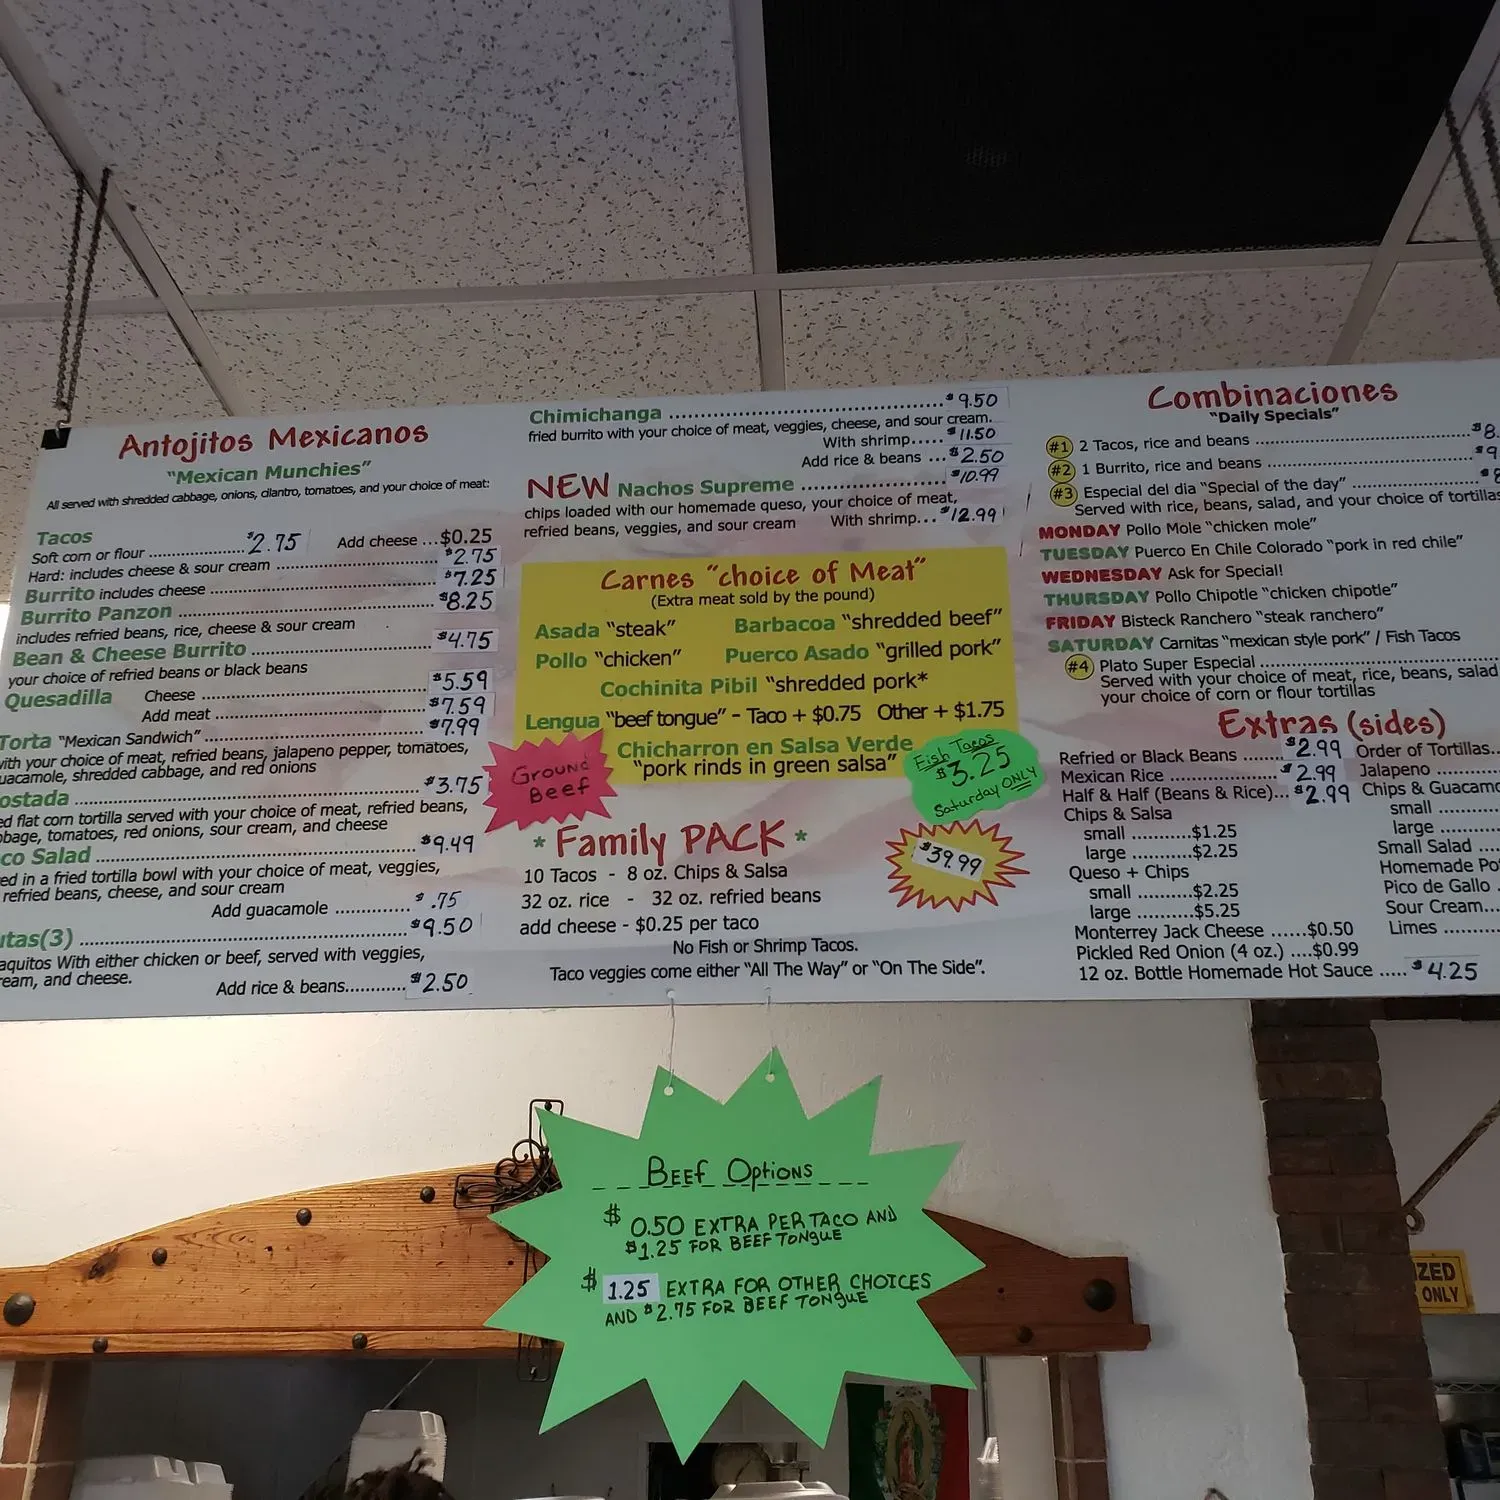 Antojitos Mexicanos
"Mexican Munchies"
All served with shredded cabbage, onions, cilantro, tomatoes, and your choice of meat:
Tacos
Soft corn or flour ........................ $2.75 Add cheese ...$0.25
Hard: includes cheese & sour cream ........................ $2.75
Burrito includes cheese ........................ $7.25
Burrito Panzon ........................ $8.25
includes refried beans, rice, cheese & sour cream
Bean & Cheese Burrito ........................ $4.75
your choice of refried beans or black beans
Quesadilla Cheese ........................ $5.59
Add meat ........................ $7.59
Torta "Mexican Sandwich" ........................ $7.99
with your choice of meat, refried beans, jalapeno pepper, tomatoes,
guacamole, shredded cabbage, and red onions
ostada ........................ $3.75
ed flat corn tortilla served with your choice of meat, refried beans,
bbage, tomatoes, red onions, sour cream, and cheese
co Salad ........................ $9.49
ed in a fried tortilla bowl with your choice of meat, veggies,
refried beans, cheese, and sour cream
Add guacamole .............. $.75
utas(3) ........................ $9.50
aquitos With either chicken or beef, served with veggies,
ream, and cheese.
Add rice & beans............ $2.50
Chimichanga ........................ $9.50
fried burrito with your choice of meat, veggies, cheese, and sour cream.
With shrimp..... $11.50
Add rice & beans ... $2.50
NEW Nachos Supreme ........................ $10.99
chips loaded with our homemade queso, your choice of meat,
refried beans, veggies, and sour cream With shrimp... $12.99
Carnes "choice of Meat"
(Extra meat sold by the pound)
Asada "steak" Barbacoa "shredded beef"
Pollo "chicken" Puerco Asado "grilled pork"
Cochinita Pibil "shredded pork*
Lengua "beef tongue" - Taco + $0.75 Other + $1.75
Chicharron en Salsa Verde
"pork rinds in green salsa"
Ground
Beef
Fish Tacos
$3.25
Saturday ONLY
* Family PACK *
$39.99
10 Tacos - 8 oz. Chips & Salsa
32 oz. rice - 32 oz. refried beans
add cheese - $0.25 per taco
No Fish or Shrimp Tacos.
Taco veggies come either "All The Way" or "On The Side".
Combinaciones
"Daily Specials"
#1 2 Tacos, rice and beans ........................ $8.
#2 1 Burrito, rice and beans ........................ $9
#3 Especial del dia "Special of the day" ........................ $8
Served with rice, beans, salad, and your choice of tortillas
MONDAY Pollo Mole "chicken mole"
TUESDAY Puerco En Chile Colorado "pork in red chile"
WEDNESDAY Ask for Special!
THURSDAY Pollo Chipotle "chicken chipotle"
FRIDAY Bisteck Ranchero "steak ranchero"
SATURDAY Carnitas "mexican style pork" / Fish Tacos
#4 Plato Super Especial ........................
Served with your choice of meat, rice, beans, salad
your choice of corn or flour tortillas
Extras (sides)
Refried or Black Beans ....... $2.99
Mexican Rice ................ $2.99
Half & Half (Beans & Rice)... $2.99
Chips & Salsa
small ...........$1.25
large ...........$2.25
Queso + Chips
small ..........$2.25
large ..........$5.25
Monterrey Jack Cheese ......$0.50
Pickled Red Onion (4 oz.) ....$0.99
12 oz. Bottle Homemade Hot Sauce ..... $4.25
Order of Tortillas...
Jalapeno ........
Chips & Guacamo
small .........
large .........
Small Salad ....
Homemade Po
Pico de Gallo .
Sour Cream...
Limes ........
Beef Options
$0.50 EXTRA PER TACO AND
$1.25 FOR BEEF TONGUE
$1.25 EXTRA FOR OTHER CHOICES
AND $2.75 FOR BEEF TONGUE
ZED
ONLY